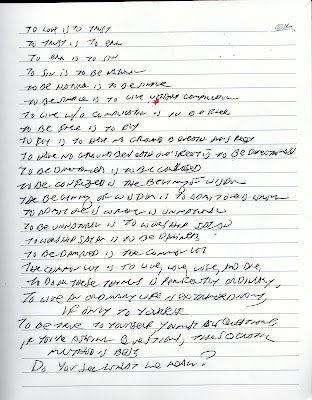 TO LOVE IS TO TRUST
TO TRUST IS TO ERR
TO ERR IS TO SIN
TO SIN IS TO BE NATURAL
TO BE NATURAL IS TO BE SIMPLE
TO BE SIMPLE IS TO LIVE WITHOUT COMPLICATION
TO LIVE W/O COMPLICATION IS TO BE FREE
TO BE FREE IS TO FLY
TO FLY IS TO HAVE NO GROUND BENEATH ONE'S FEET
TO HAVE NO GROUND BENEATH ONE'S FEET IS TO BE
TO BE IS TO BE CONFUSED
TO BE CONFUSED IS THE BEGINNING OF WISDOM
THE BEGINNING OF WISDOM IS TO ADMIT ONE IS WRONG
TO ADMIT ONE IS WRONG IS UNNATURAL
TO BE UNNATURAL IS TO WORSHIP SATAN
TO WORSHIP SATAN IS TO BE DAMNED
TO BE DAMNED IS THE COMMON LOT
THE COMMON LOT IS TO LIVE, LOVE, AND DIE,
TO DO THESE THINGS IS PERFECTLY ORDINARY
TO LIVE AN ORDINARY LIFE IS EXTRAORDINARY,
IF ONLY TO YOURSELF
TO BE TRUE TO YOURSELF YOU MUST ASK QUESTIONS,
IF YOU'RE ASKING QUESTIONS, THE SOCRATIC
METHOD IS BEST.
DO YOU SEE WHAT WE MEAN?